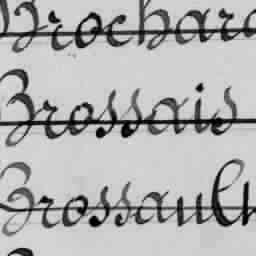 Brochard
Brossais
Brossault